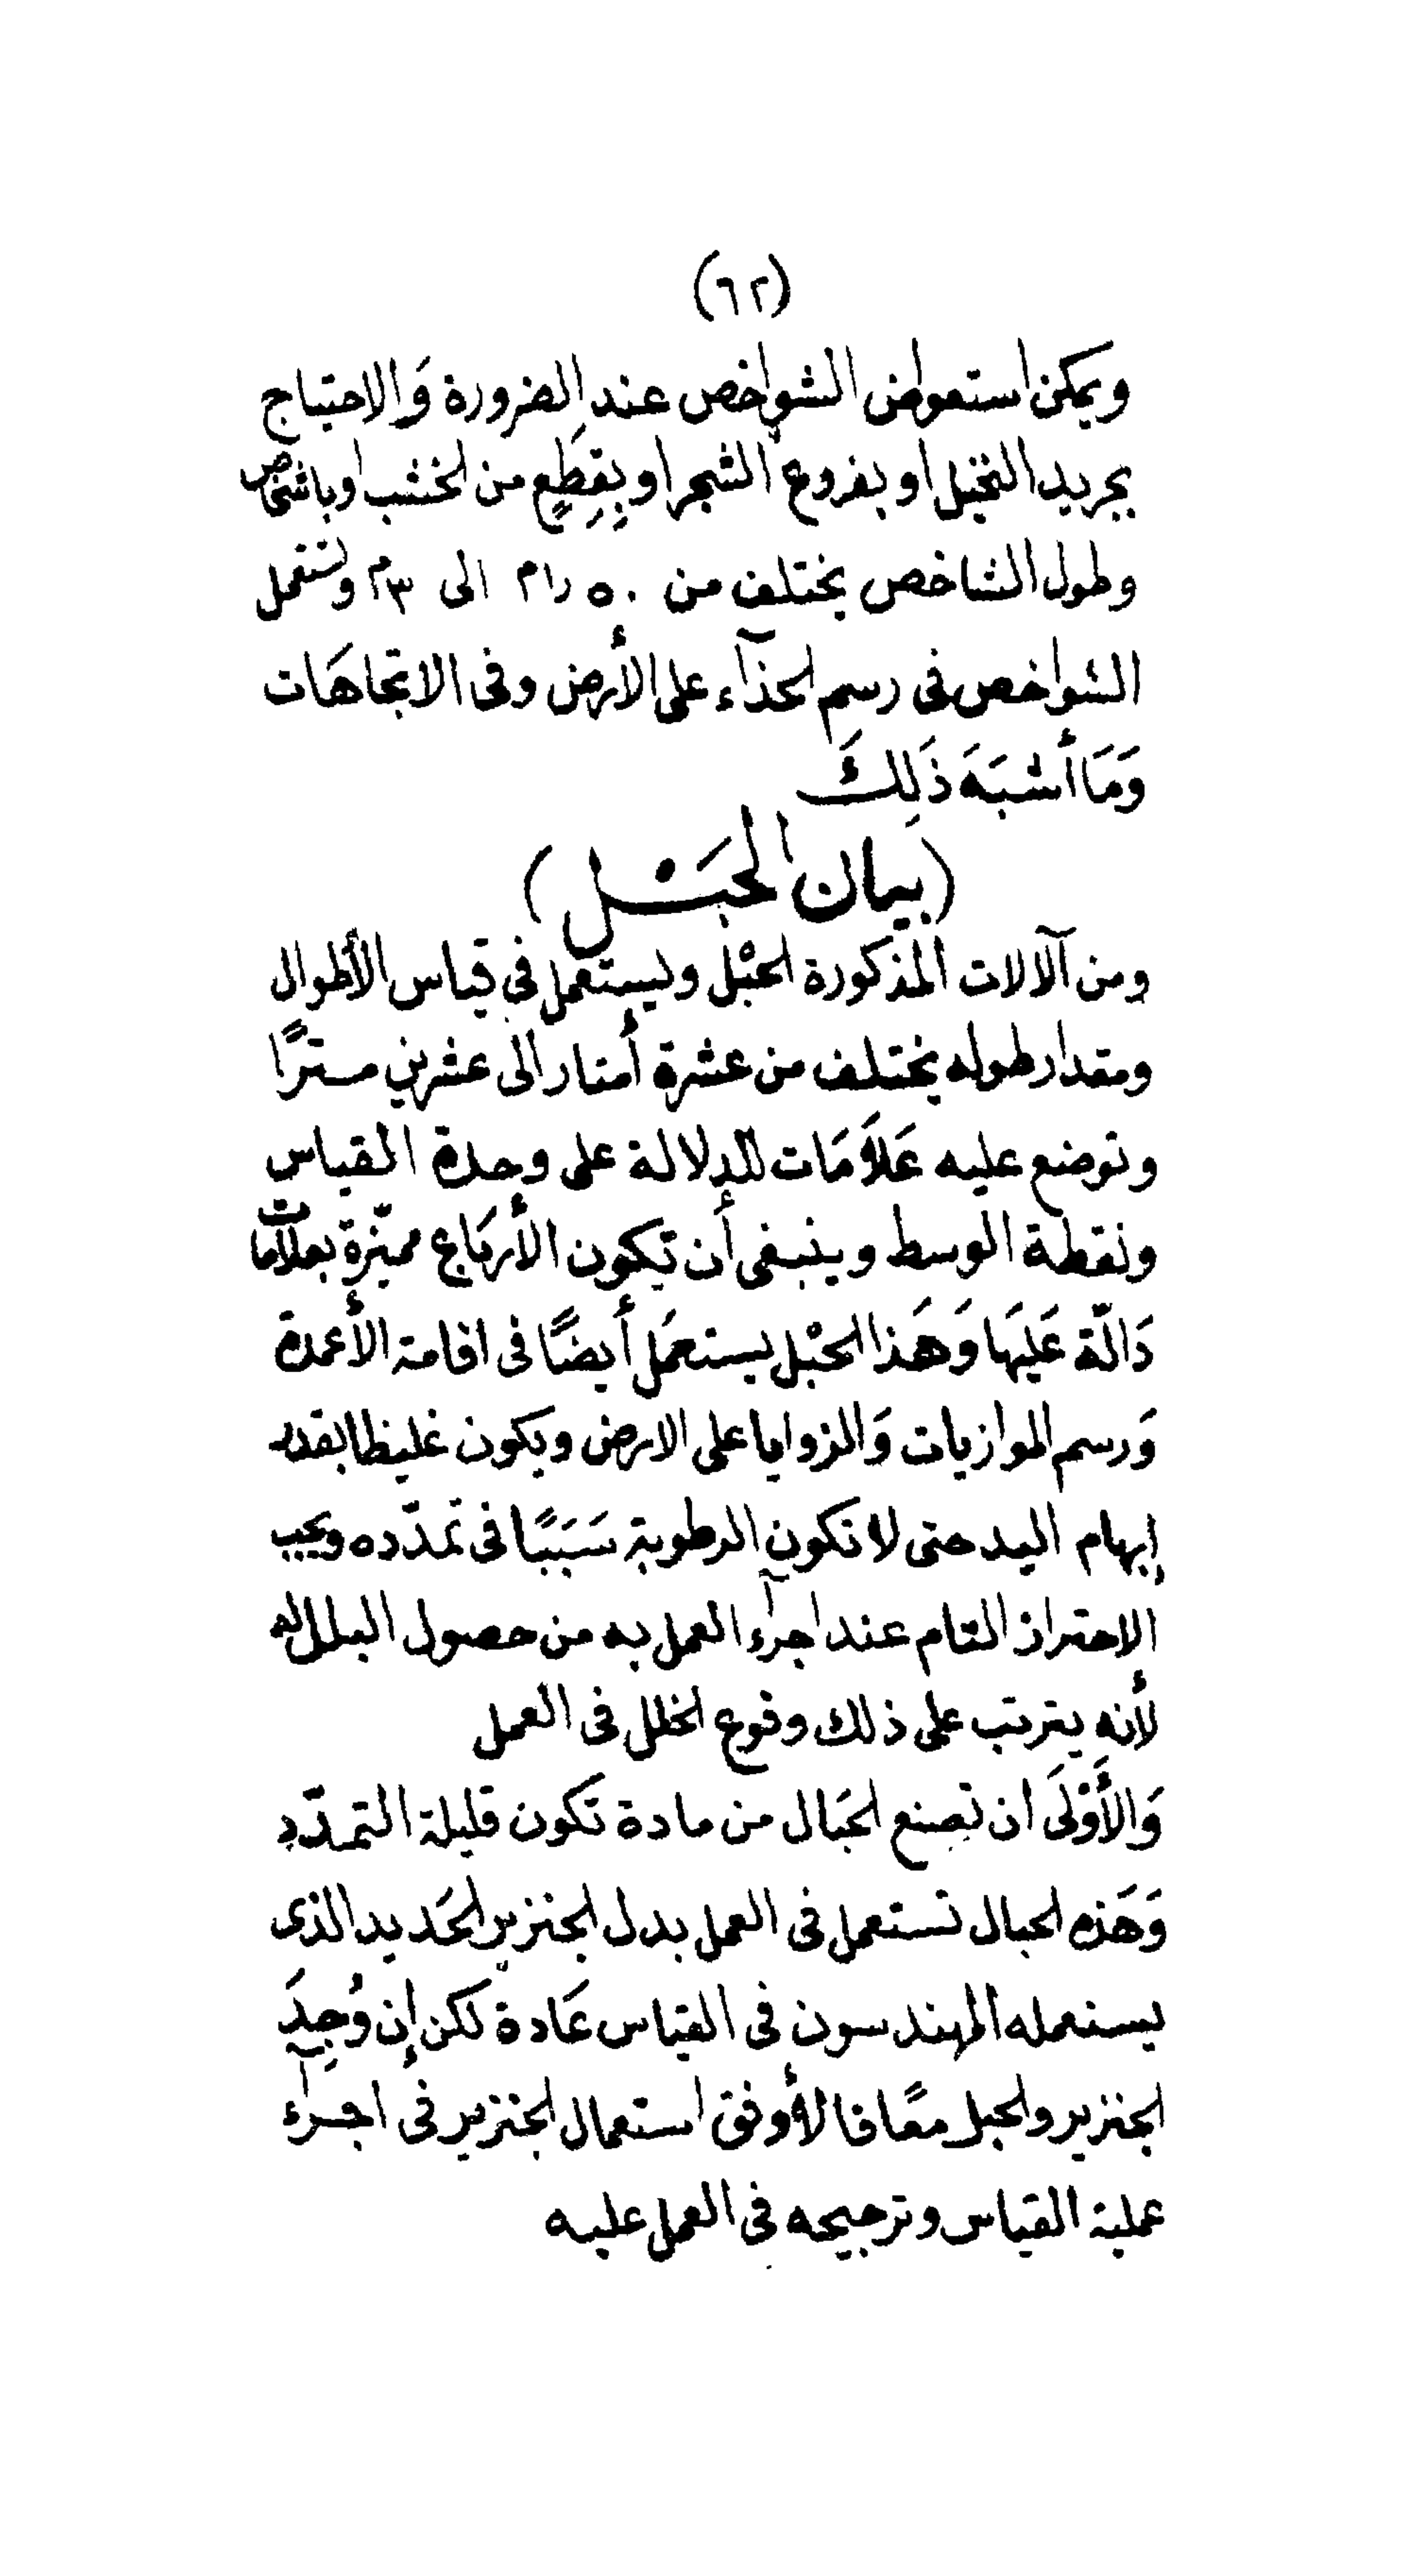 (٦٢)
ويمكن استعواض الشواخص عند الضرورة وَالاحتياج
بجريد النخيل او بفروع الشجر او بِقِطَعٍ من الخشب او باشخاص
وطول الشاخص يختلف من ٥٠ ر١م الى ٣م وتستعمل
الشواخص فى رسم الحذآء على الأرض وفى الاتجاهَات
وَمَا أشبَهَ ذَلِكَ
(بيان الحبَْل)
ومن آلالات المذكورة الحبْل ويستعمل فى قياس الأطوال
ومقدار طوله يختلف من عشرة أمتار الى عشرين مترًا
وتوضع عليه عَلاَمَات للدلالة على وحدة القياس
ونقطة الوسط وينبغى أن تكون الأربَاع مميّزة بعلامات
دَالّة عَليهَا وَهَذا الحبْل يستعمَل أيضًا فى اقامة الأعمدة
وَرسم الموازيات وَالزوايا على الارض ويكون غليظا بقدر
إبهام اليد حتى لا تكون الرطوبة سَبَبًا فى تمدّده ويجب
الاحتراز التام عند اجرآء العمل به من حصول البلل له
لأنه يترتب على ذلك وقوع الخلل فى العمل
وَالأَوْلَى ان تصنع الحبَال من مادة تكون قليلة التمدّد
وَهَذه الحبال تستعمل فى العمل بدل الجنزير الحَديد الذى
يستعمله المهندسون فى القياس عَادة لكن إن وُجِدَ
الجنزير والحبل معًا فالأوفق استعمال الجنزير فى اجرآء
عملية القياس وترجيحه فى العمل عليه